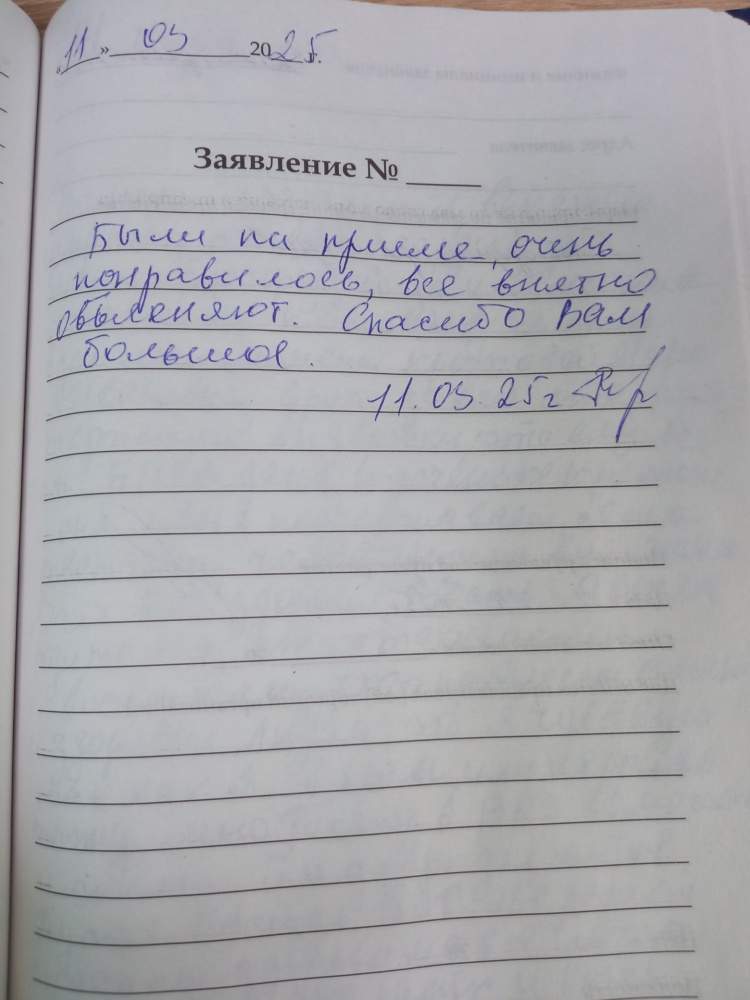 «11» 03 2025г.
Заявление № ______
Были на приеме, очень
понравилось, все внятно
обьясняют. Спасибо Вам
большое.
11.03.25г